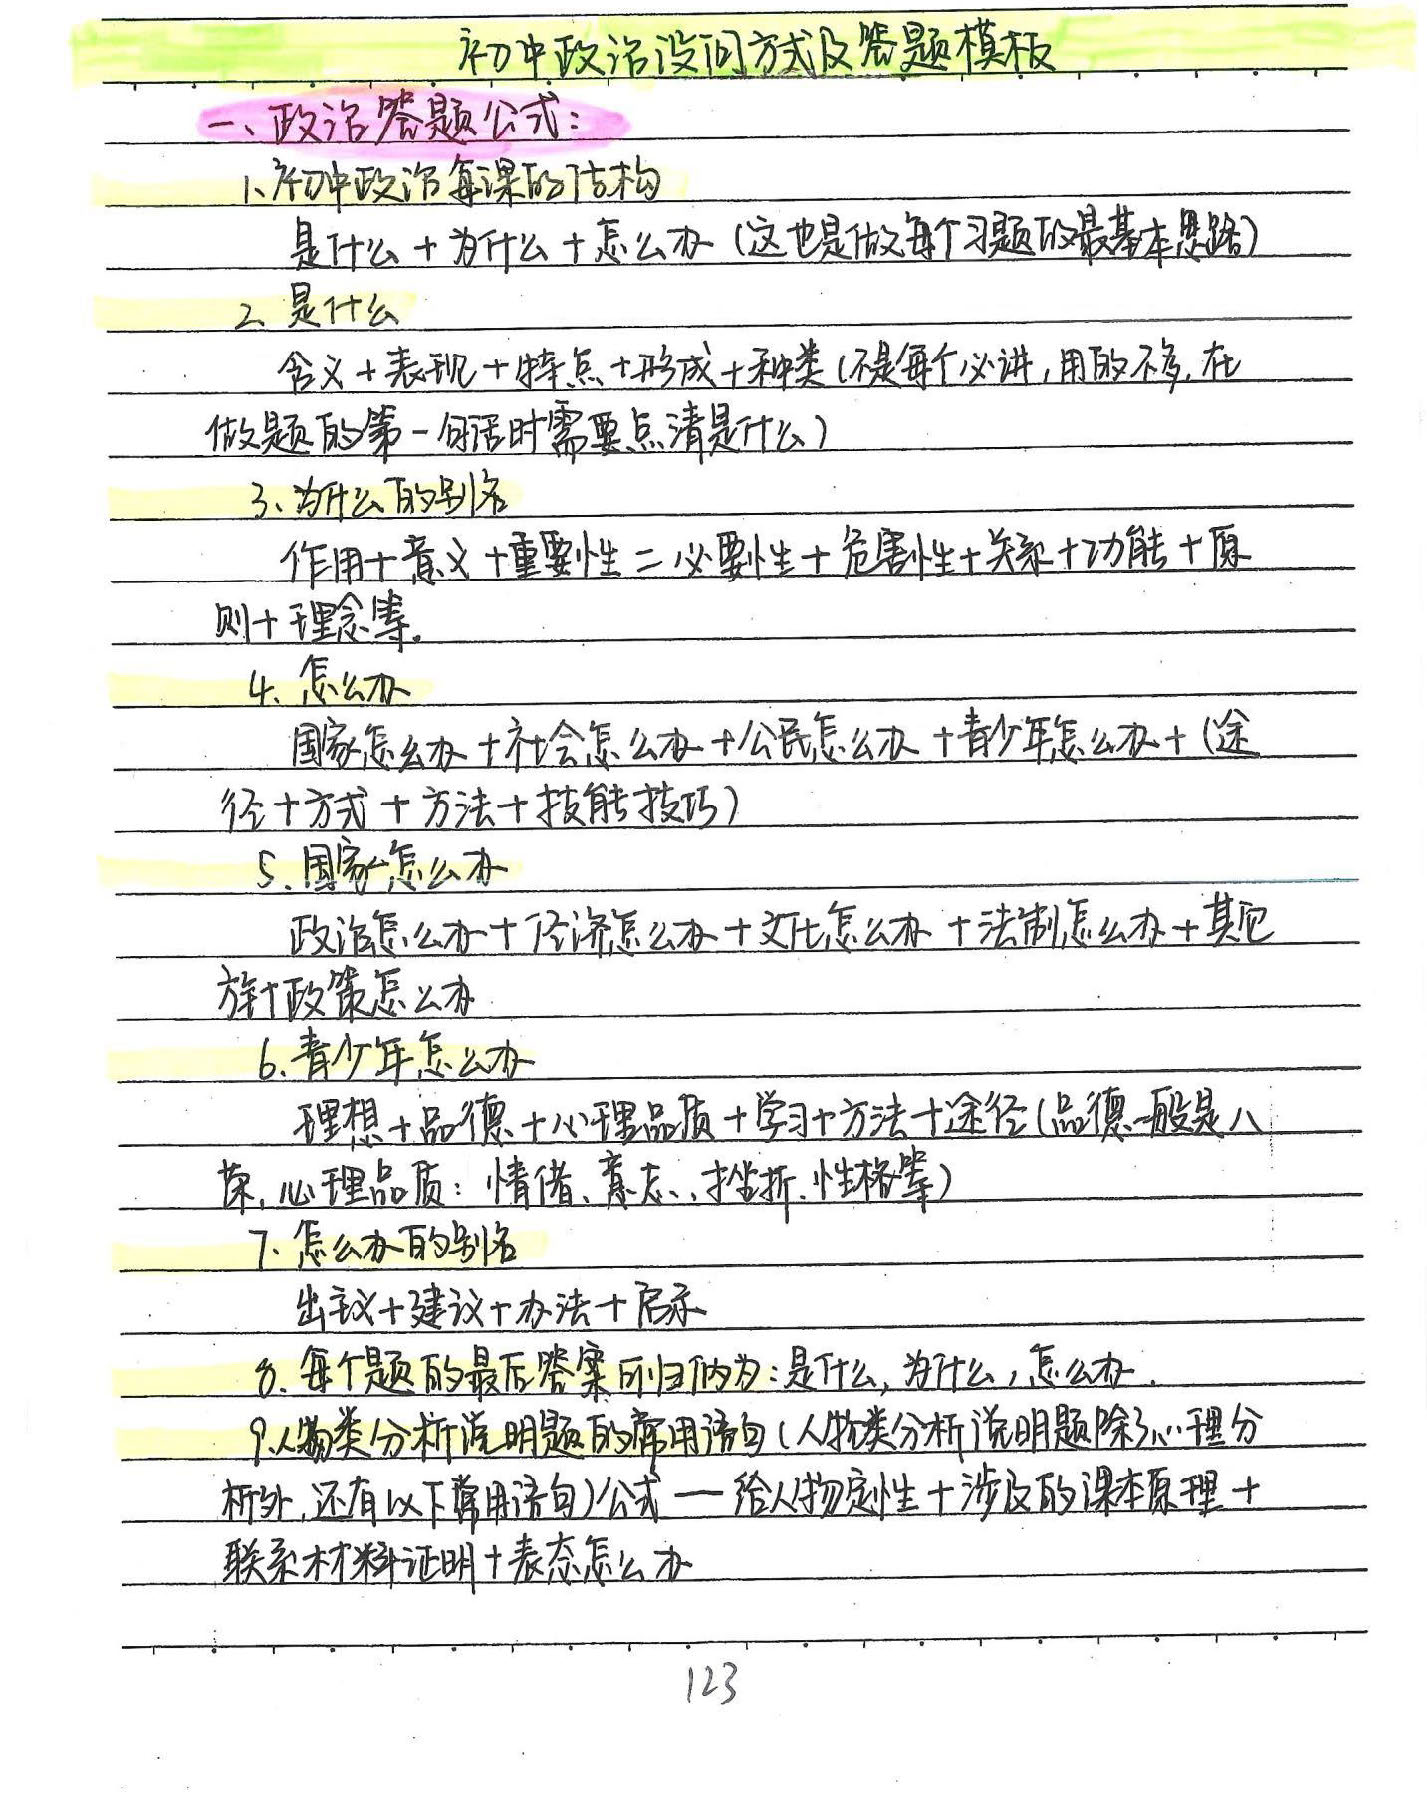 初中政治设问方式及答题模板
一、政治答题公式：
1、初中政治每课的结构
是什么+为什么+怎么办（这也是做每个习题的最基本思路）
2、是什么
含义+表现+特点+形成+种类（不是每个必讲，用的不多，在
做题的第一句话时需要点清是什么）
3、为什么的别名
作用+意义+重要性=必要性+危害性+关系+功能+原
则+理念等。
4、怎么办
国家怎么办+社会怎么办+公民怎么办+青少年怎么办+（途
径+方式+方法+技能技巧）
5、国家怎么办
政治怎么办+经济怎么办+文化怎么办+法制怎么办+其它
方针政策怎么办
6、青少年怎么办
理想+品德+心理品质+学习+方法+途径（品德一般是八
荣，心理品质：情绪、意志、挫折、性格等）
7、怎么办的别名
出主议+建议+办法+启示
8、每个题的最后答案可归纳为：是什么，为什么，怎么办。
9、人物类分析说明题的常用语句（人物类分析说明题除了心理分
析外，还有以下常用语句）公式一给人物定性+涉及的课本原理+
联系材料证明+表态怎么办
123